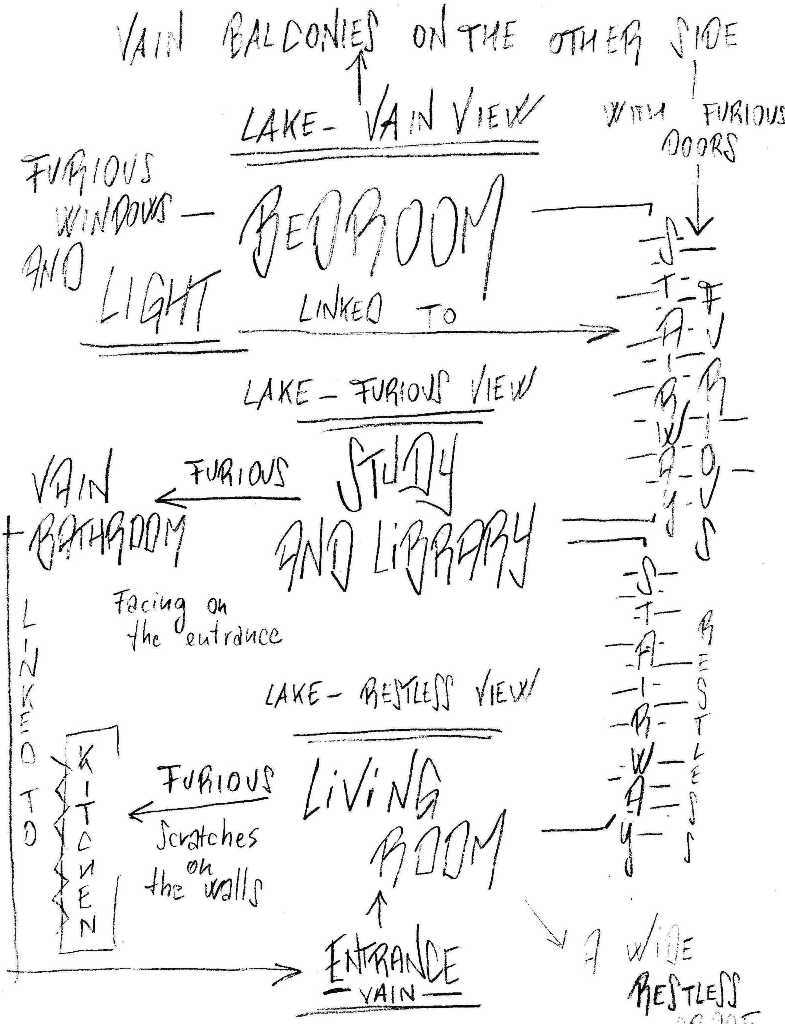 VAIN BALCONIES ON THE OTHER SIDE
WITH FURIOUS
DOORS
LAKE - VAIN VIEW
FURIOUS
WINDOWS -
AND
LIGHT
BEDROOM
LINKED TO
STAIRWAY
FURIOUS
LAKE - FURIOUS VIEW
STUDY
AND LiBRARY
FURIOUS
VAIN
BATHROOM
Facing on
the entrance
LINKED TO
STAIRWAY
RESTLESS
LAKE - RESTLESS VIEW
LiViNG
ROOM
FURIOUS
Scratches
on
the walls
KITCHEN
ENTRANCE
VAIN
A WIDE
RESTLESS